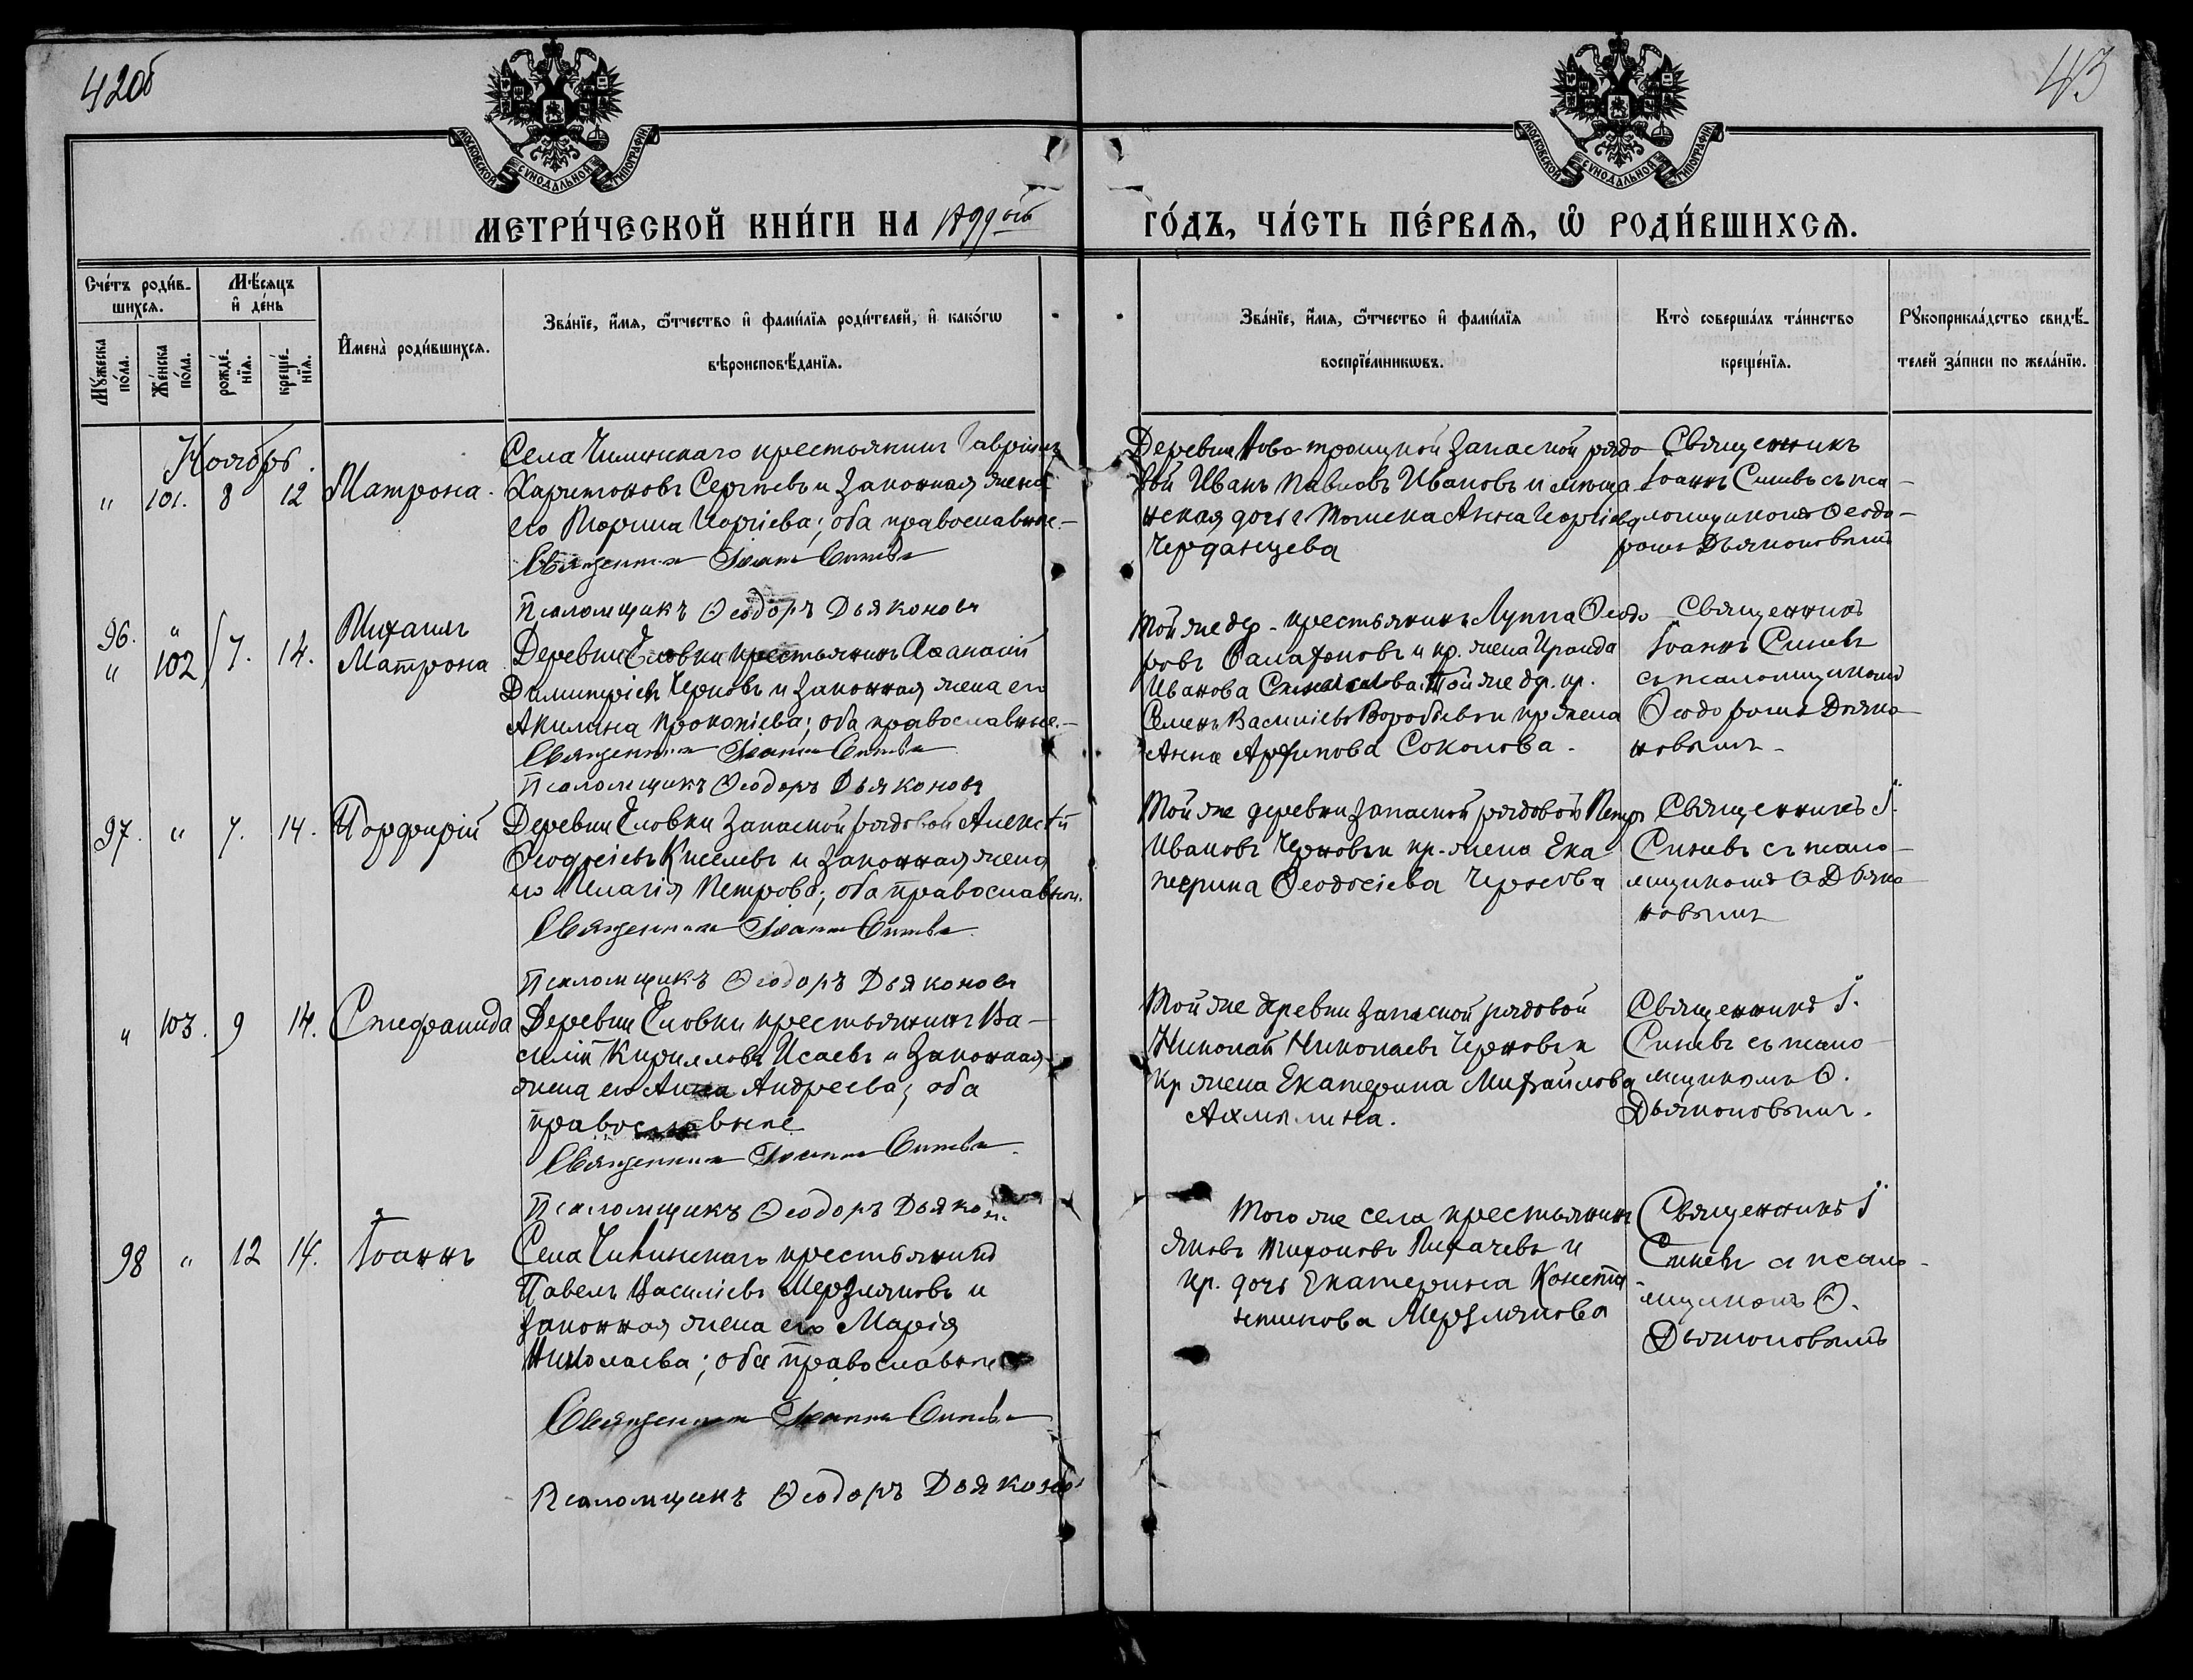 42об
43
МОСКОВСКОЙ СУНОДАЛЬНОЙ ТИПОГРАФІИ
МОСКОВСКОЙ СУНОДАЛЬНОЙ ТИПОГРАФІИ
МЕТРИ́ЧЕСКОЙ КНИ́ГИ НА 1899ый ГО́ДЪ, ЧА́СТЬ ПЕ́РВАѦ, Ѽ РОДИ́ВШИХСѦ.
Сче́тъ роди́в-
шихсѧ.
Мꙋ́жеска по́ла.
Же́нска по́ла.
Мѣ́сѧцъ
и҆ де́нь
рожде́-
нїѧ.
креще́-
нїѧ.
И҆мена̀ роди́вшихсѧ.
Зва́нїе, и҆́мѧ, ѻ҆́тчество и҆ фами́лїѧ роди́телей, и҆ како́гѡ
вѣроисповѣ́данїѧ.
Зва́нїе, и҆́мѧ, ѻ҆́тчество и҆ фами́лїѧ
воспрїе́мникѡвъ.
Кто̀ соверша́лъ та́инство
креще́нїѧ.
Рꙋкоприкла́дство свидѣ́-
телей за́писи по жела́нїю.
Ноябрь.
" 101. 8 12 Матрона.
Села крестьянинъ Гавріилъ
Харитоновъ Сергѣевъ и законная жена
его Георгіева; оба православные.-
Священникъ Іоаннъ Синевъ
Псаломщикъ Ѳеодоръ Дьяконовъ
Деревни Ново-троицкой запасной рядо
вой Иванъ Павловъ Ивановъ и мѣща-
нская дочь г Томска Анна Георгіева
Черданцева
Священникъ
Іоаннъ Синевъ съ пса-
ломщикомъ Ѳеодо-
ромъ Дьяконовымъ
96. " Михаилъ
" 102 7. 14. Матрона
Деревни Еловки крестьянинъ Аѳанасій
Димитріевъ Черновъ и законная жена его
Акилина Прокопіева; оба православные.-
Священникъ Іоаннъ Синевъ
Псаломщикъ Ѳеодоръ Дьяконовъ
Той же дер. крестьянинъ Луппа Ѳеодо
ровъ и кр. жена Ираида
Иванова Той же др. кр.
Семенъ Васильевъ Воробьевъ и кр жена
Анна Архипова Соколова.
Священникъ
Іоаннъ Синевъ
съ псаломщикомъ
Ѳеодоромъ Дьяко-
новымъ.
97. " 7. 14. Порфирій
Деревни Еловки запасной рядовой Алексѣй
Ѳеодосіевъ Киселевъ и законная жена
его Пелагія Петрова; оба православные.
Священникъ Іоаннъ Синевъ
Псаломщикъ Ѳеодоръ Дьяконовъ
Той же деревни запасной рядовой Петръ
Ивановъ Черновъ и кр. жена Ека
терина Ѳеодосіева Чернова
Священникъ І.
Синевъ съ псало-
мщикомъ Ѳ Дьяко
новымъ
" 103. 9 14. Стефанида
Деревни Еловки крестьянинъ Ва-
силій Кирилловъ Исаевъ и законная
жена его Анна Андреева; оба
православные
Священникъ Іоаннъ Синевъ.
Псаломщикъ Ѳеодоръ Дьяконовъ
Той же деревни запасной рядовой
Николай Николаевъ Черновъ и
кр жена Екатерина Михайлова
Ахмылина.
Священникъ І.
Синевъ съ псало-
мщикомъ Ѳ.
Дьяконовымъ.
98 " 12 14. Іоаннъ
Села крестьянинъ
Павелъ Василіевъ Мерзляковъ и
законная жена его Марія
Николаева; оба православные
Священникъ Іоаннъ Синевъ
Псаломщикъ Ѳеодоръ Дьяконовъ
Того же села крестьянинъ
Яковъ Тихоновъ Лихачевъ и
кр. дочь Екатерина Конста-
нтинова Мерзлякова
Священникъ І
Синевъ съ псало-
мщикомъ Ѳ.
Дьяконовымъ